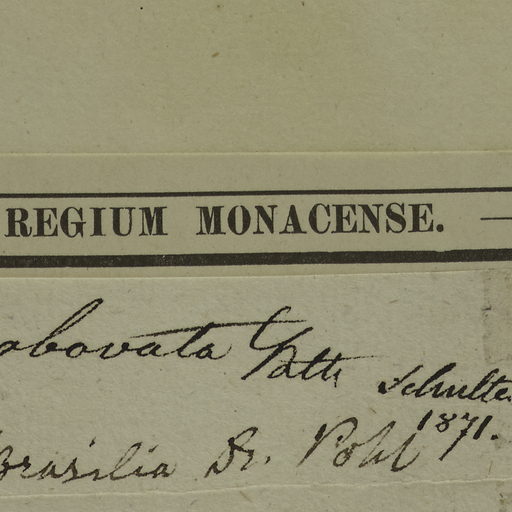 REGIUM MONACENSE.
obovata Schultes
1871.
Brasilia Dr. Pohl